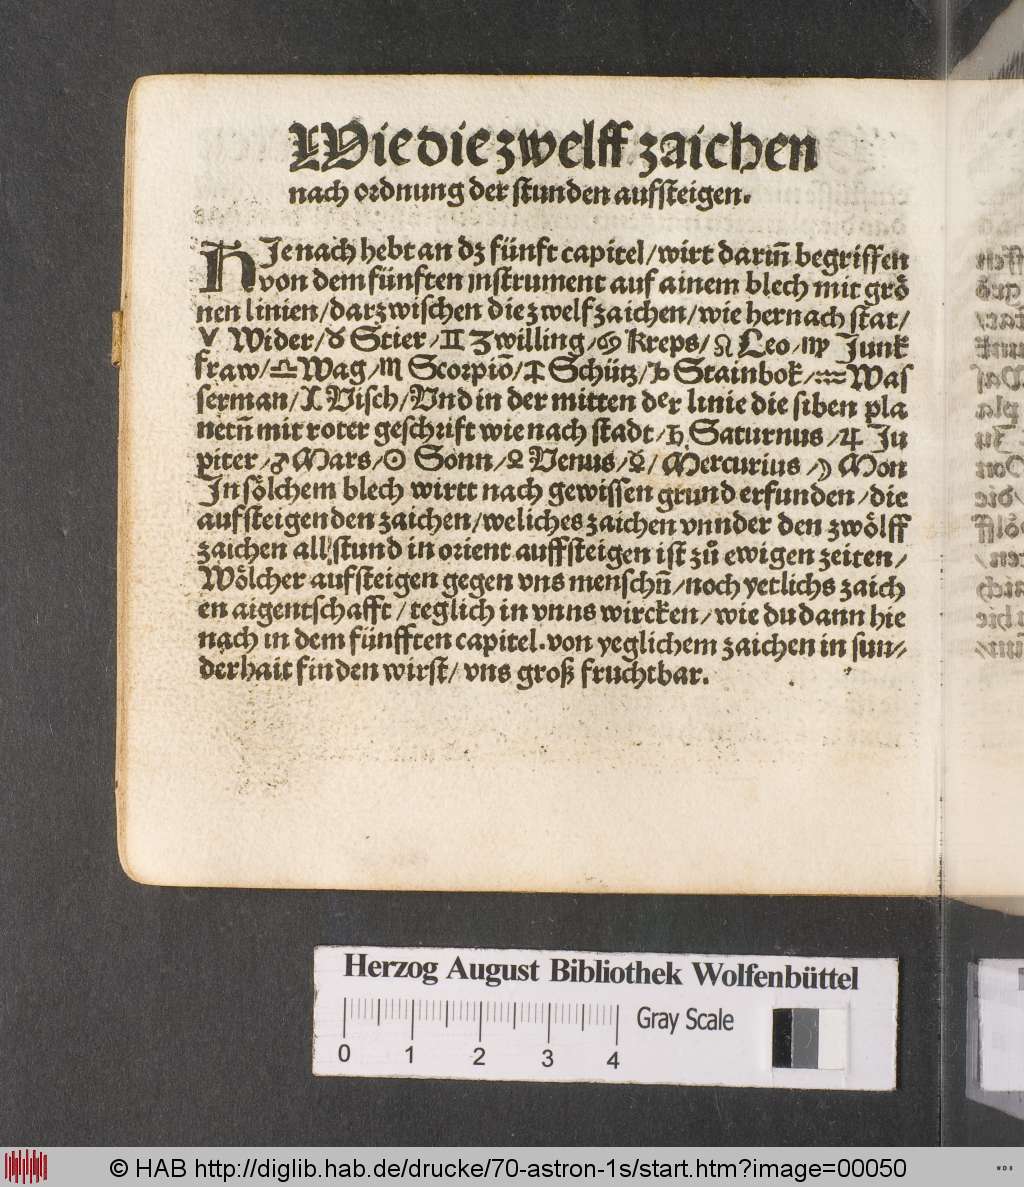 Wie die zwelff zaichen
nach ordnung der stunden aufsteigen.
HJenach hebt an dz fünft capitel/wirt darin̄ begriffen
von dem fünften instrument auf ainem blech mit grö
nen linien/darzwischen die zwelf zaichen/wie hernach stat/
♈ Wider/♉ Stier/♊ Zwilling/♋ Kreps/♌ Leo/♍ Junk
fraw/♎ Wag/♏ Scorpiō/♐ Schütz/♑ Stainbok/♒ Was
serman/♓ Visch/Vnd in der mitten der linie die siben pla
netn̄ mit roter geschrift wie nach stadt/♄ Saturnus/♃ Ju
piter/♂ Mars/☉ Sonn/♀ Venus/☿/ Mercurius/☽ Mon
In sölchem blech wirtt nach gewissen grund erfunden/die
aufsteigenden zaichen/weliches zaichen vnnder den zwölff
zaichen all stund in orient auffsteigen ist zů ewigen zeiten/
Wölcher aufsteigen gegen vns menschn̄/noch yetlichs zaich
en aigentschafft/teglich in vnns wircken/wie du dann hie
nach in dem fünfften capitel.von yeglichem zaichen in sun⸗
derhait finden wirst/vns groß fruchtbar.
Herzog August Bibliothek Wolfenbüttel
0 1 2 3 4 Gray Scale
© HAB http://diglib.hab.de/drucke/70-astron-1s/start.htm?image=00050